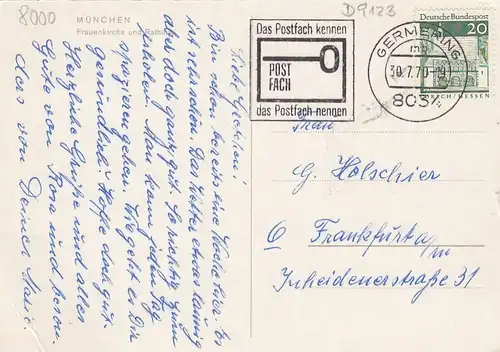 8000
MÜNCHEN
Frauenkirche und Rathaus
D9123
Das Postfach kennen
POST
FACH
das Postfach nennen
GERMERING
mb
30.7.70-19
8034
Deutsche Bundespost
20
LORSCH/HESSEN
Liebe Gretchen!
Bin schon bereits eine Woche hier. Es
ist schön. Das Wetter etwas launig
aber doch ganz gut. So richtig zum
erholen. Man kann jeden Tag
spazierengehen. Wie geht es Dir
gesundlich? Hoffe doch gut.
Herzliche Grüße und alles
Gute von Rosa und
das von Deiner
Frau
G. Holschier
6 Frankfurt a/m
Inheidenerstraße 31